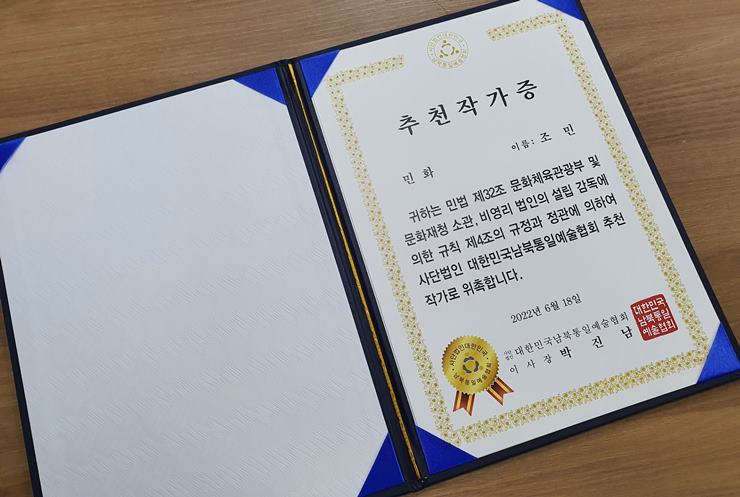 추천작가증
이름: 조 민
민 화
귀하는 민법 제32조 문화체육관광부 및
문화재청 소관, 비영리 법인의 설립 감독에
의한 규칙 제4조의 규정과 정관에 의하여
사단법인 대한민국남북통일예술협회 추천
작가로 위촉합니다.
2022년 6월 18일
사단법인 대한민국남북통일예술협회
이 사 장 박 진 남
대한민국
남북통일
예술협회
사단법인대한민국